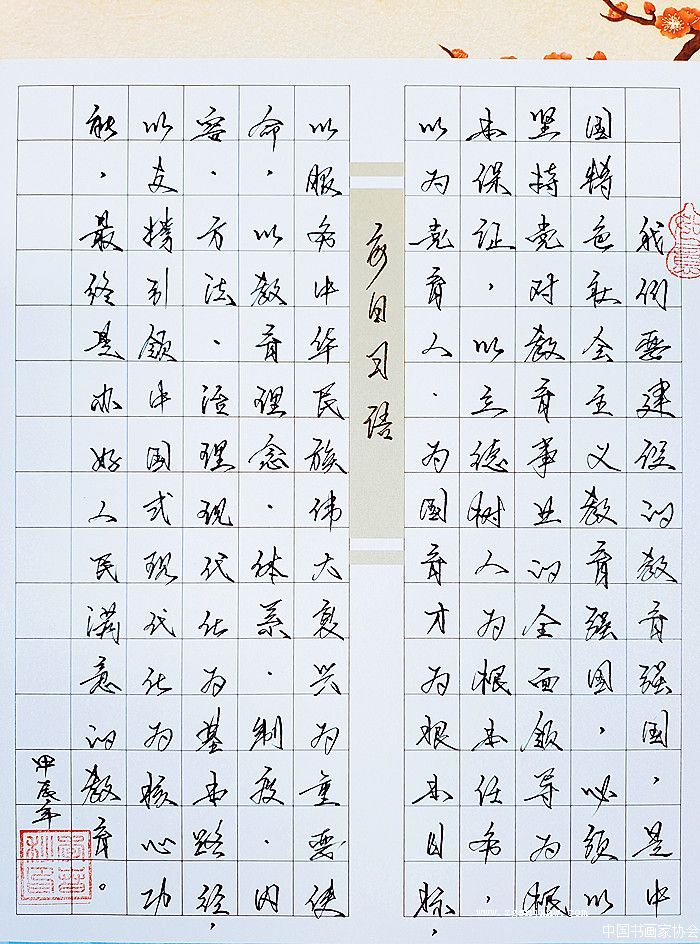 我们要建设的教育强国，是中
国特色社会主义教育强国，必须以
坚持党对教育事业的全面领导为根
本保证，以立德树人为根本任务，
以为党育人、为国育才为根本目标，
每日习语
以服务中华民族伟大复兴为重要使
命，以教育理念、体系、制度、内
容、方法、治理现代化为基本路径，
以支撑引领中国式现代化为核心功
能，最终是办好人民满意的教育。
甲辰年
中国书画家协会